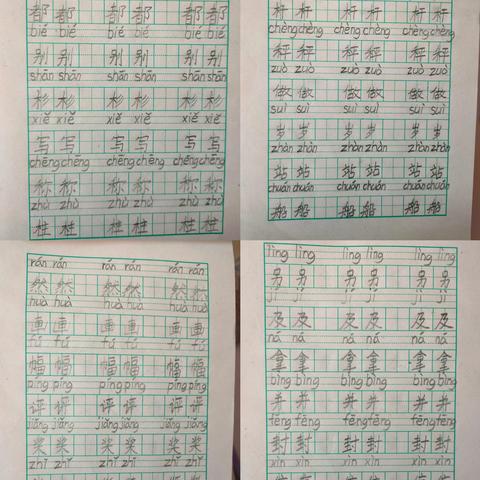 都都 都都 都都
bié bié bié bié bié bié
别别 别别 别别
shān shān shān shān shān shān
杉杉 杉杉 杉杉
xiě xiě xiě xiě xiě xiě
写写 写写 写写
chēng chēng chēng chēng chēng chēng
称称 称称 称称
zhù zhù zhù zhù zhù zhù
柱柱 柱柱 柱柱
杆杆 杆杆 杆杆
chèng chèng chèng chèng chèng chèng
秤秤 秤秤 秤秤
zuò zuò zuò zuò zuò zuò
做做 做做 做做
suì suì suì suì suì suì
岁岁 岁岁 岁岁
zhàn zhàn zhàn zhàn zhàn zhàn
站站 站站 站站
chuán chuán chuán chuán chuán chuán
船船 船船 船船
rán rán rán rán rán rán
然然 然然 然然
huà huà huà huà huà huà
画画 画画 画画
fú fú fú fú fú fú
幅幅 幅幅 幅幅
píng píng píng píng píng píng
评评 评评 评评
jiǎng jiǎng jiǎng jiǎng jiǎng jiǎng
奖奖 奖奖 奖奖
zhǐ zhǐ zhǐ zhǐ zhǐ zhǐ
lìng lìng lìng lìng lìng lìng
另另 另另 另另
jí jí jí jí jí jí
及及 及及 及及
ná ná ná ná ná ná
拿拿 拿拿 拿拿
bìng bìng bìng bìng bìng bìng
并并 并并 并并
fēng fēng fēng fēng fēng fēng
封封 封封 封封
xìn xìn xìn xìn xìn xìn